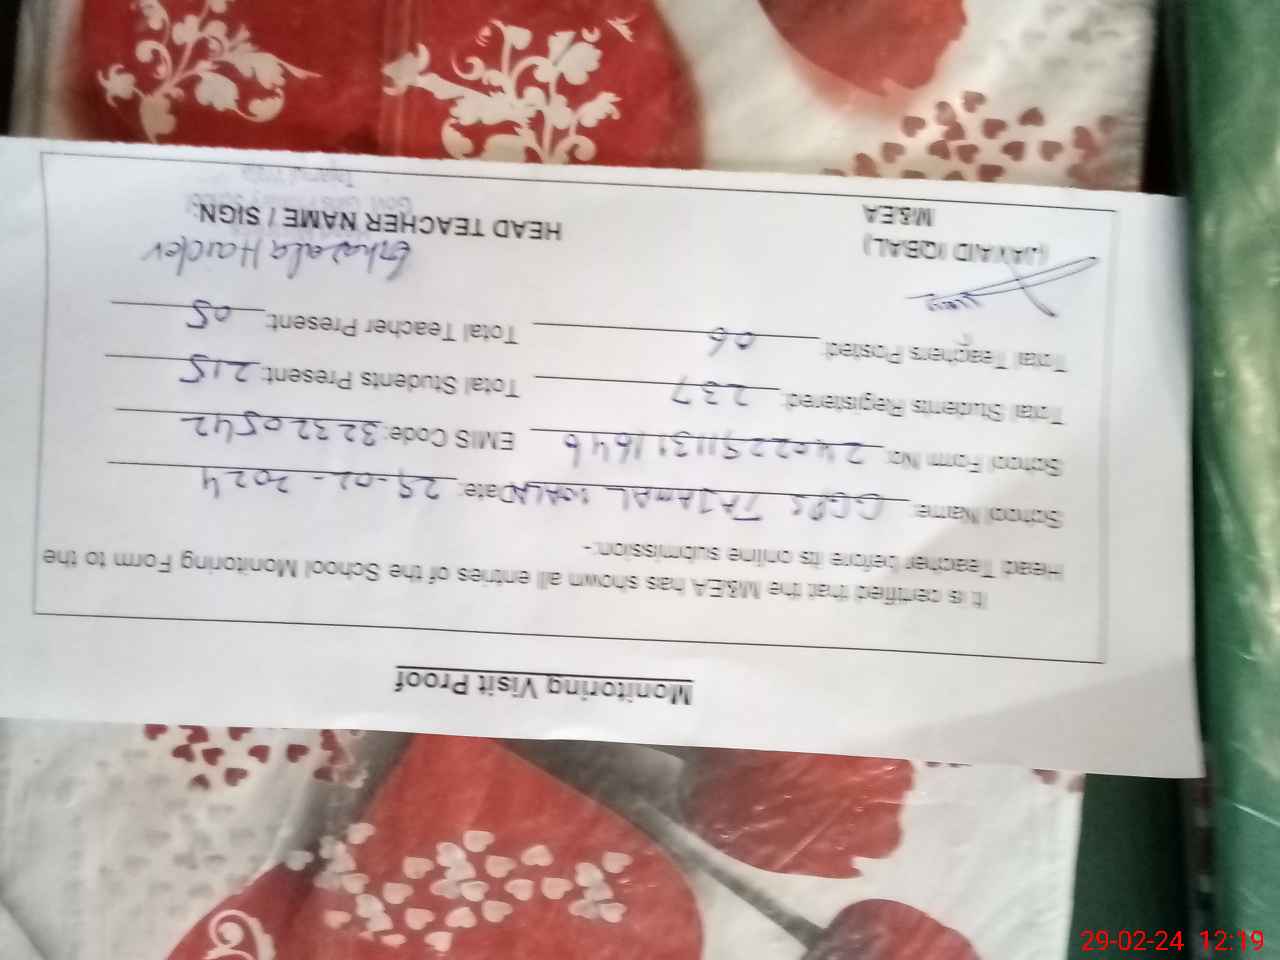 Monitoring Visit Proof
It is certified that the M&EA has shown all entries of the School Monitoring Form to the
Head Teacher before its online submission:-
School Name: GGPS TAJAMAL WALA Date: 29-02-2024
School Form No: 24022911311646 EMIS Code: 32320542
Total Students Registered: 237 Total Students Present: 215
Total Teachers Posted: 06 Total Teacher Present: 05
Ghazala Haider
(JAVAID IQBAL)
M&EA HEAD TEACHER NAME / SIGN:
29-02-24 12:19